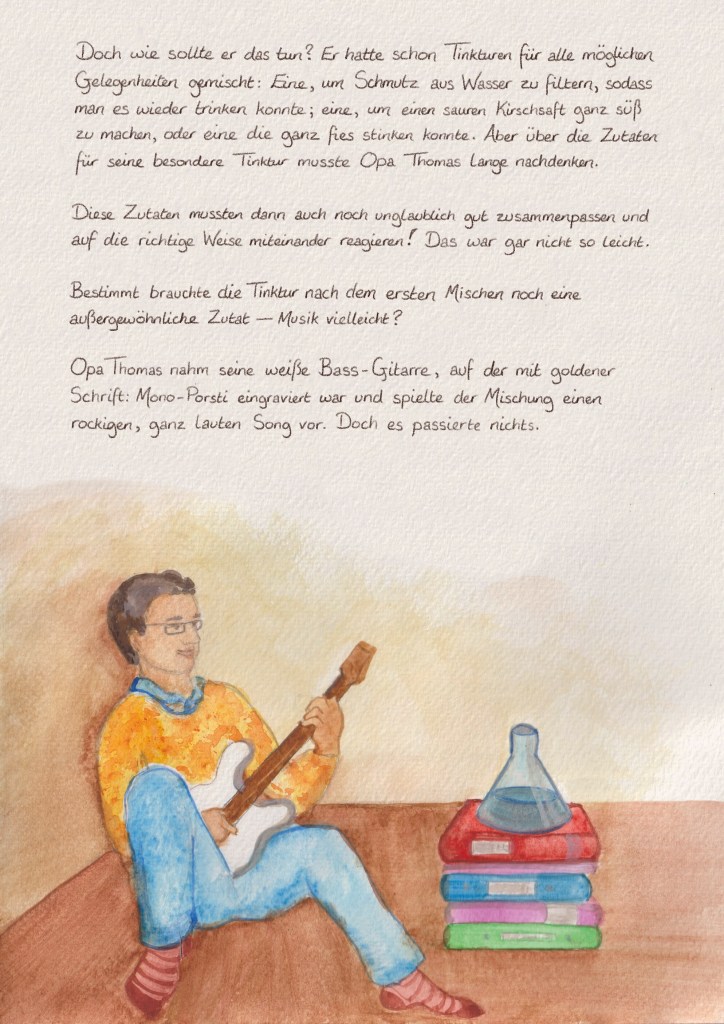 Doch wie sollte er das tun? Er hatte schon Tinkturen für alle möglichen
Gelegenheiten gemischt: Eine, um Schmutz aus Wasser zu filtern, sodass
man es wieder trinken konnte; eine, um einen sauren Kirschsaft ganz süß
zu machen, oder eine die ganz fies stinken konnte. Aber über die Zutaten
für seine besondere Tinktur musste Opa Thomas lange nachdenken.
Diese Zutaten mussten dann auch noch unglaublich gut zusammenpassen und
auf die richtige Weise miteinander reagieren! Das war gar nicht so leicht.
Bestimmt brauchte die Tinktur nach dem ersten Mischen noch eine
außergewöhnliche Zutat — Musik vielleicht?
Opa Thomas nahm seine weiße Bass-Gitarre, auf der mit goldener
Schrift: Mono-Porsti eingraviert war und spielte der Mischung einen
rockigen, ganz lauten Song vor. Doch es passierte nichts.